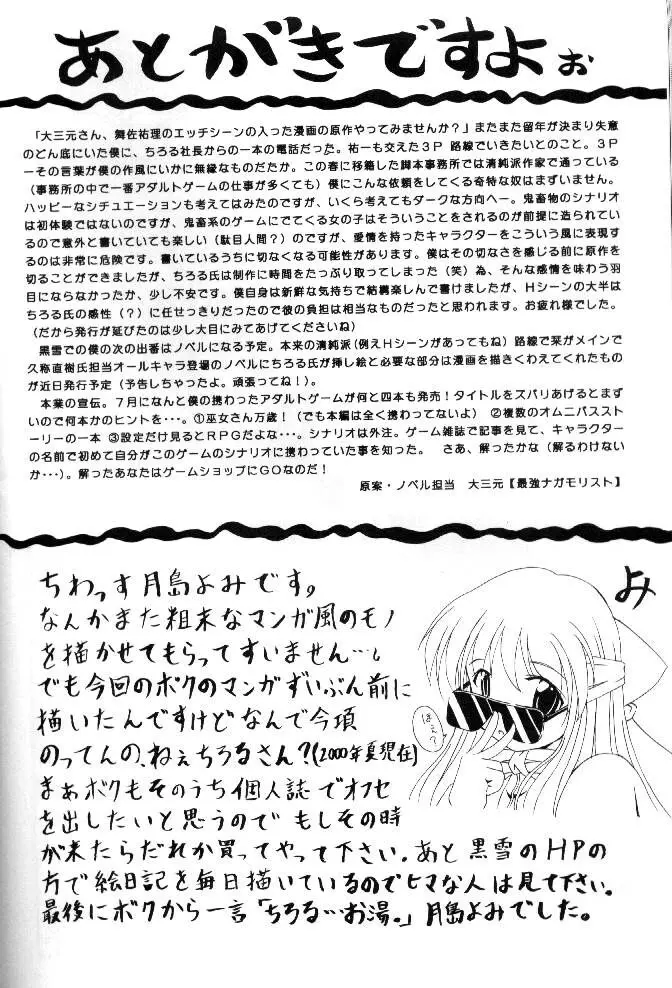 あとがきですよぉ
「大三元さん、舞佐祐理のエッチシーンの入った漫画の原作やってみませんか？」またまた留年が決まり失意
のどん底にいた僕に、ちろる社長からの一本の電話だった。祐一も交えた３Ｐ 路線でいきたいとのこと。３Ｐ
ーその言葉が僕の作風にいかに無縁なものだたか。この春に移籍した脚本事務所では清純派作家で通っている
（事務所の中で一番アダルトゲームの仕事が多くても）僕にこんな依頼をしてくる奇特な奴はまずいません。
ハッピーなシチュエーションも考えてはみたのですが、いくら考えてもダークな方向へー。鬼畜物のシナリオ
は初体験ではないのですが、鬼畜系のゲームにでてくる女の子はそういうことをされるのが前提に造られてい
るので意外と書いていても楽しい（駄目人間？）のですが、愛情を持ったキャラクターをこういう風に表現す
るのは非常に危険です。書いているうちに切なくなる可能性があります。僕はその切なさを感じる前に原作を
切ることができましたが、ちろる氏は制作に時間をたっぷり取ってしまった（笑）為、そんな感情を味わう羽
目にならなかったか、少し不安です。僕自身は新鮮な気持ちで結構楽しんで書けましたが、Ｈシーンの大半は
ちろる氏の感性（？）に任せっきりだったので彼の負担は相当なものだったと思われます。お疲れ様でした。
（だから発行が延びたのは少し大目にみてあげてくださいね）
黒雪での僕の次の出番はノベルになる予定。本来の清純派（例えＨシーンがあってもね）路線で栞がメインで
久弥直樹氏担当オールキャラ登場のノベルにちろる氏が挿し絵と必要な部分は漫画を描きくわえてくれたもの
が近日発行予定（予告しちゃったよ。頑張ってね！）。
本業の宣伝。７月になんと僕の携わったアダルトゲームが何と四本も発売！タイトルをズバリあげるとまず
いので何本かのヒントを・・・。①巫女さん万歳！（でも本編は全く携わってないよ） ②複数のオムニバススト
ーリーの一本 ③設定だけ見るとＲＰＧだよな・・・。シナリオは外注。ゲーム雑誌で記事を見て、キャラクター
の名前で初めて自分がこのゲームのシナリオに携わっていた事を知った。 さあ、解ったかな（解るわけない
か・・・）。解ったあなたはゲームショップにＧＯなのだ！
原案・ノベル担当 大三元【最強ナガモリスト】
ちわっす月島よみです。
なんかまた粗末なマンガ風のモノ
を描かせてもらってすいません…。
でも今回のボクのマンガずいぶん前に
描いたんですけどなんで今頃
のってんの、ねぇちろるさん？（2000年夏現在）
まぁボクもそのうち個人誌でオフセ
を出したいと思うので もしその時
が来たらだれか買ってやって下さい。あと 黒雪のＨＰの
方で絵日記を毎日描いているのでヒマな人は見て下さい。
最後にボクから一言「ちろる…お湯。」月島よみでした。
よみ
ほえ？